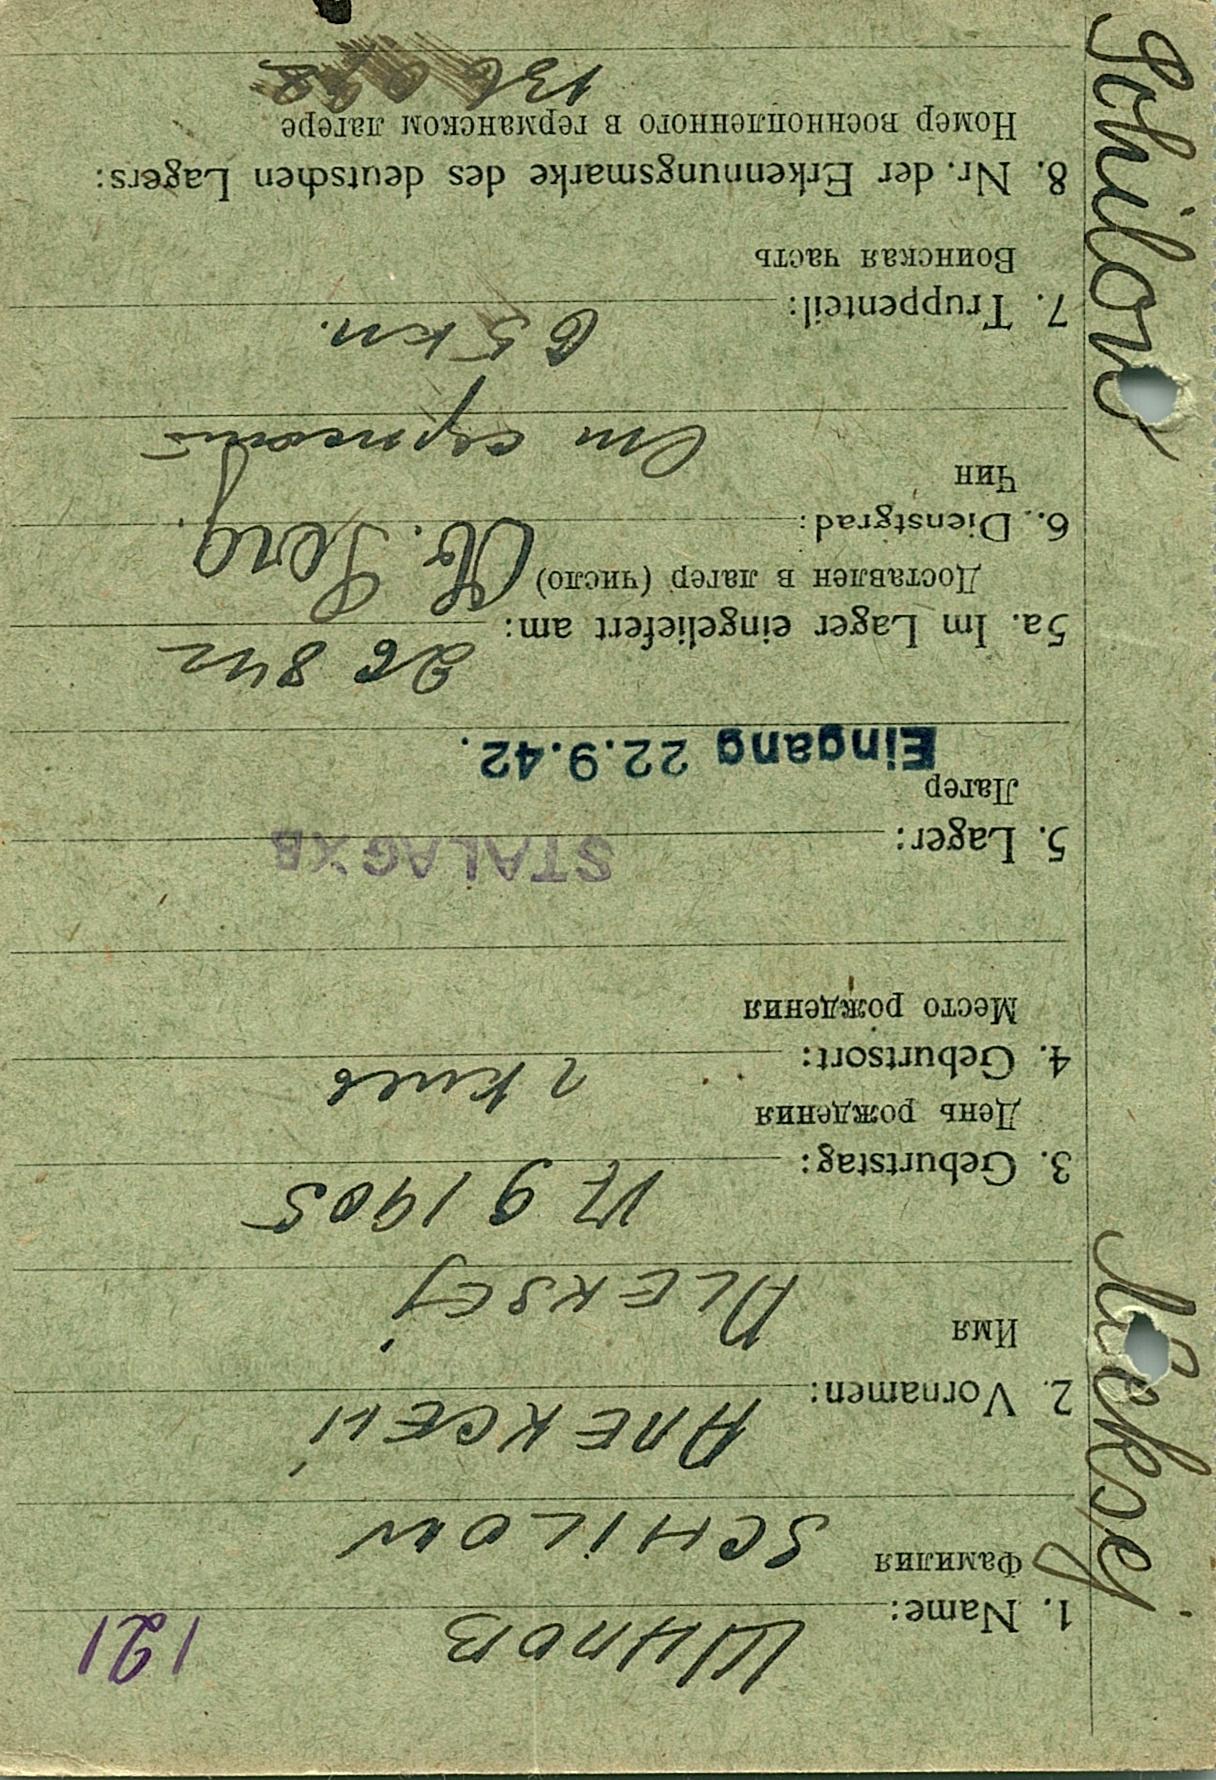 191
1. Name: ШИЛОВ
Фамилия
SCHILOW
2. Vornamen: АЛЕКСЕЙ
Имя
ALEKSEJ
3. Geburtstag: 17 9 1905
День рождения
4. Geburtsort: г Киев
Место рождения
5. Lager: STALAG XB
Лагер
Eingang 22.9.42.
5a. Im Lager eingeliefert am: 26 8 42
Доставлен в лагер (число)
6. Dienstgrad: St. Serg.
Чин
Ст сержант
7. Truppenteil: 65 кп.
Воинская часть
8. Nr. der Erkennungsmarke des deutschen Lagers:
Номер военнопленного в германском лагере
Schilow
Aleksej